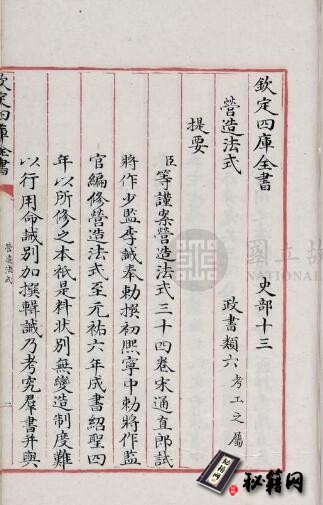 欽定四庫全書
史部十三
營造法式
政書類六考工之屬
提要
臣等謹案營造法式三十四卷宋通直郎試
將作少監李誡奉勅撰初熙寧中勅將作監
官編修營造法式至元祐六年成書紹聖四
年以所修之本祇是料狀別無變造制度難
以行用命誡別加撰輯誡乃考究羣書并與
欽定四庫全書
營造法式
國立故
NATIONAL
秘籍网
秘籍网